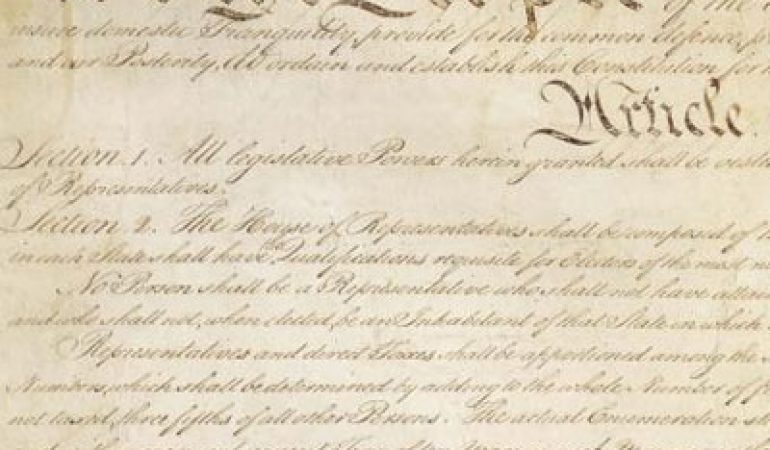 We the People of the
insure domestic Tranquility, provide for the common defence, p
and our Posterity, do ordain and establish this Constitution for
Article.
Section. 1. All legislative Powers herein granted shall be veste
of Representatives.
Section. 2. The House of Representatives shall be composed of
in each State shall have Qualifications requisite for Electors of the most n
No Person shall be a Representative who shall not have attai
and who shall not, when elected, be an Inhabitant of that State in which
Representatives and direct Taxes shall be apportioned among the
Numbers, which shall be determined by adding to the whole Number of f
not taxed, three fifths of all other Persons. The actual Enumeration sh